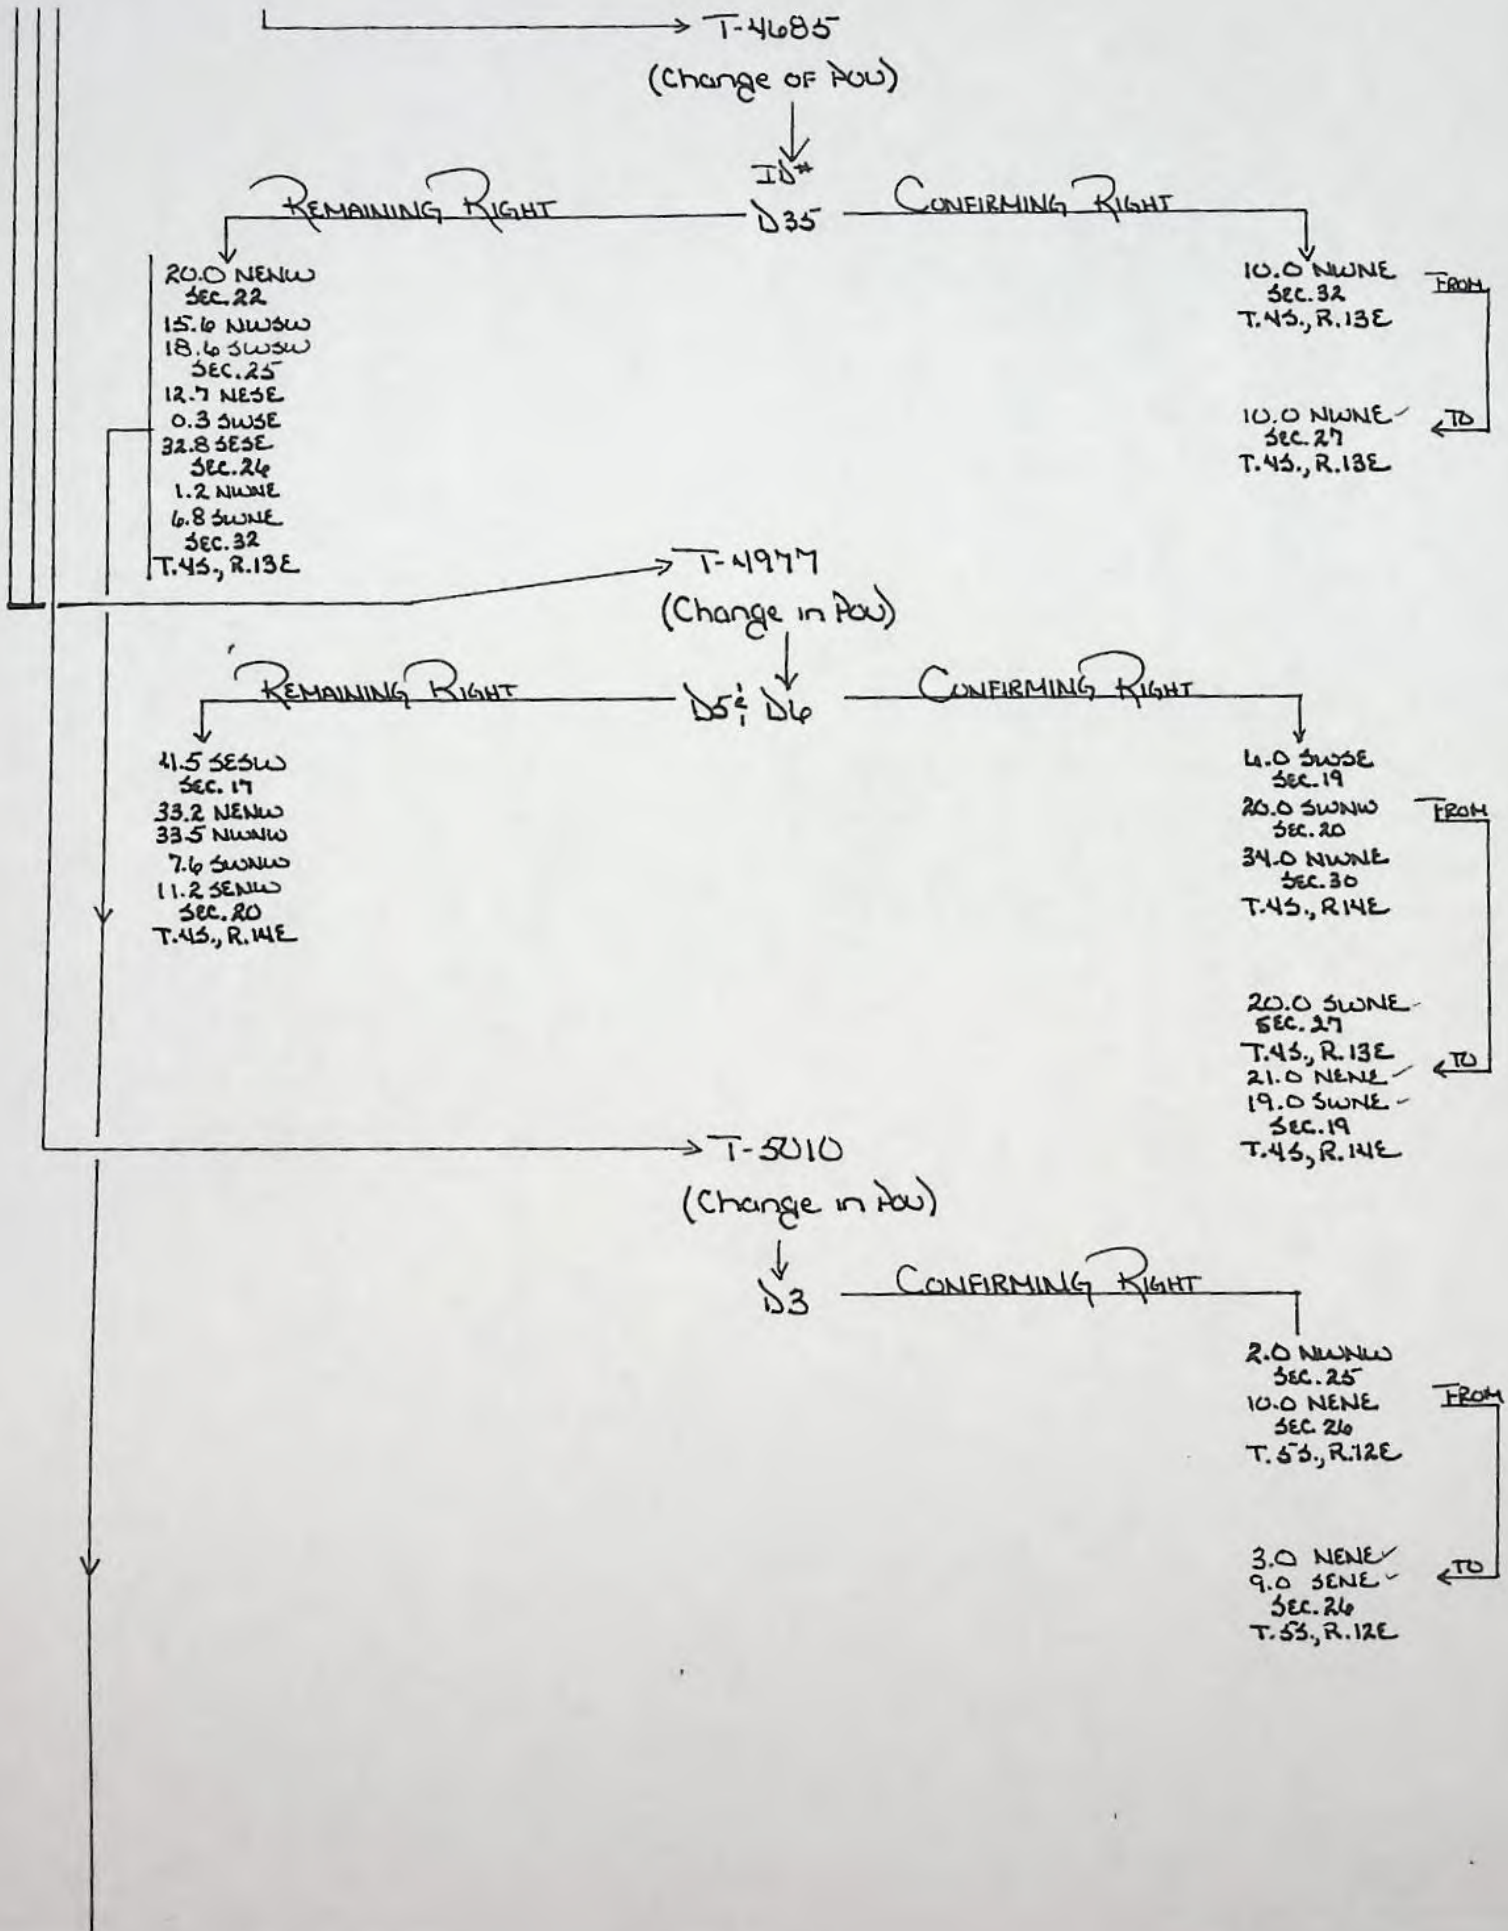 T-4685
(Change of POU)
ID#
REMAINING RIGHT
D35
CONFIRMING RIGHT
20.0 NENW
SEC. 22
15.6 NWSW
18.6 SWSW
SEC. 25
12.7 NESE
0.3 SWSE
32.8 SESE
SEC. 26
1.2 NWNE
6.8 SWNE
SEC. 32
T.4S., R.13E
10.0 NWNE
FROM
SEC. 32
T.4S., R.13E
10.0 NWNE
TO
SEC. 27
T.4S., R.13E
T-4977
(Change in POU)
REMAINING RIGHT
D5 & D6
CONFIRMING RIGHT
SESW
SEC. 17
33.2 NENW
33.5 NWNW
7.6 SWNW
11.2 SENW
SEC. 20
T.4S., R.14E
SWSE
SEC. 19
20.0 SWNW
FROM
SEC. 20
34.0 NWNE
SEC. 30
T.4S., R14E
20.0 SWNE
SEC. 27
T.4S., R.13E
TO
21.0 NENE
19.0 SWNE
SEC. 19
T.4S, R.14E
T-5010
(Change in POU)
D3
CONFIRMING RIGHT
2.0 NWNW
SEC. 25
10.0 NENE
FROM
SEC. 26
T.5S., R.12E
3.0 NENE
9.0 SENE
TO
SEC. 26
T.5S., R.12E